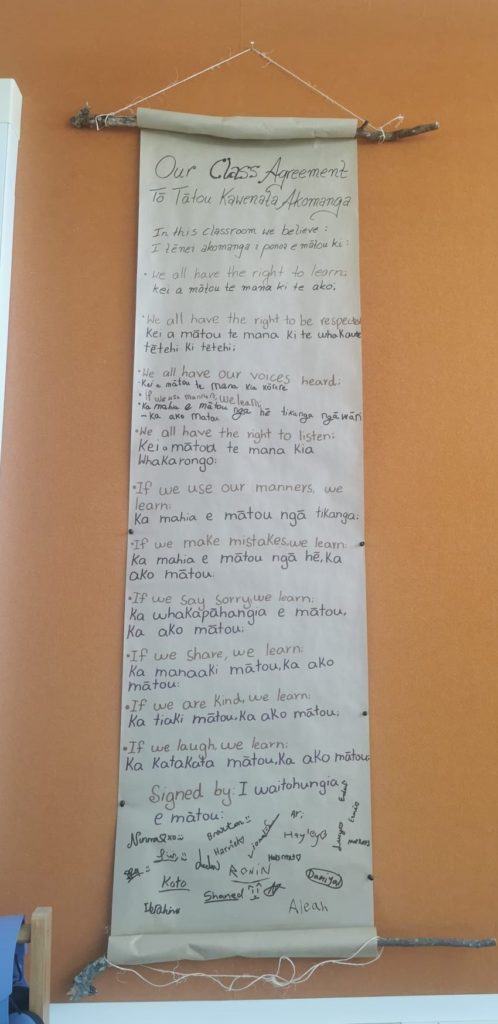 Our Class Agreement
Tō Tātou Kawenata Akomanga
In this classroom we believe:
I tēnei akomanga i pono e mātou ki:
• We all have the right to learn;
Kei a mātou te mana ki te ako;
• We all have the right to be respected
Kei a mātou te mana ki te whakaute
tētehi ki tētehi;
• We all have our voices heard;
• Kei a mātou te mana kia kōrero
• If we use manners, we learn;
• Ka mahia e mātou ngā hē tikanga ngāwari
- Ka ako matou
• We all have the right to listen;
Kei a mātou te mana kia
whakarongo;
• If we use our manners, we
learn;
Ka mahia e mātou ngā tikanga;
• If we make mistakes, we learn;
Ka mahia e mātou ngā hē, Ka
ako mātou;
• If we say sorry, we learn;
Ka whakapāhangia e mātou,
Ka ako mātou;
• If we share, we learn;
Ka manaaki mātou, Ka ako
mātou;
• If we are kind, we learn;
Ka tiaki mātou, Ka ako mātou;
• If we laugh, we learn;
Ka Katakata mātou, Ka ako mātou;
Signed by: I waitohungia
e mātou:
Braxton
Ari
Hayley
Harrick
RONIN
Damiyon
Koto
Shaned
Ibrahim
Aleah